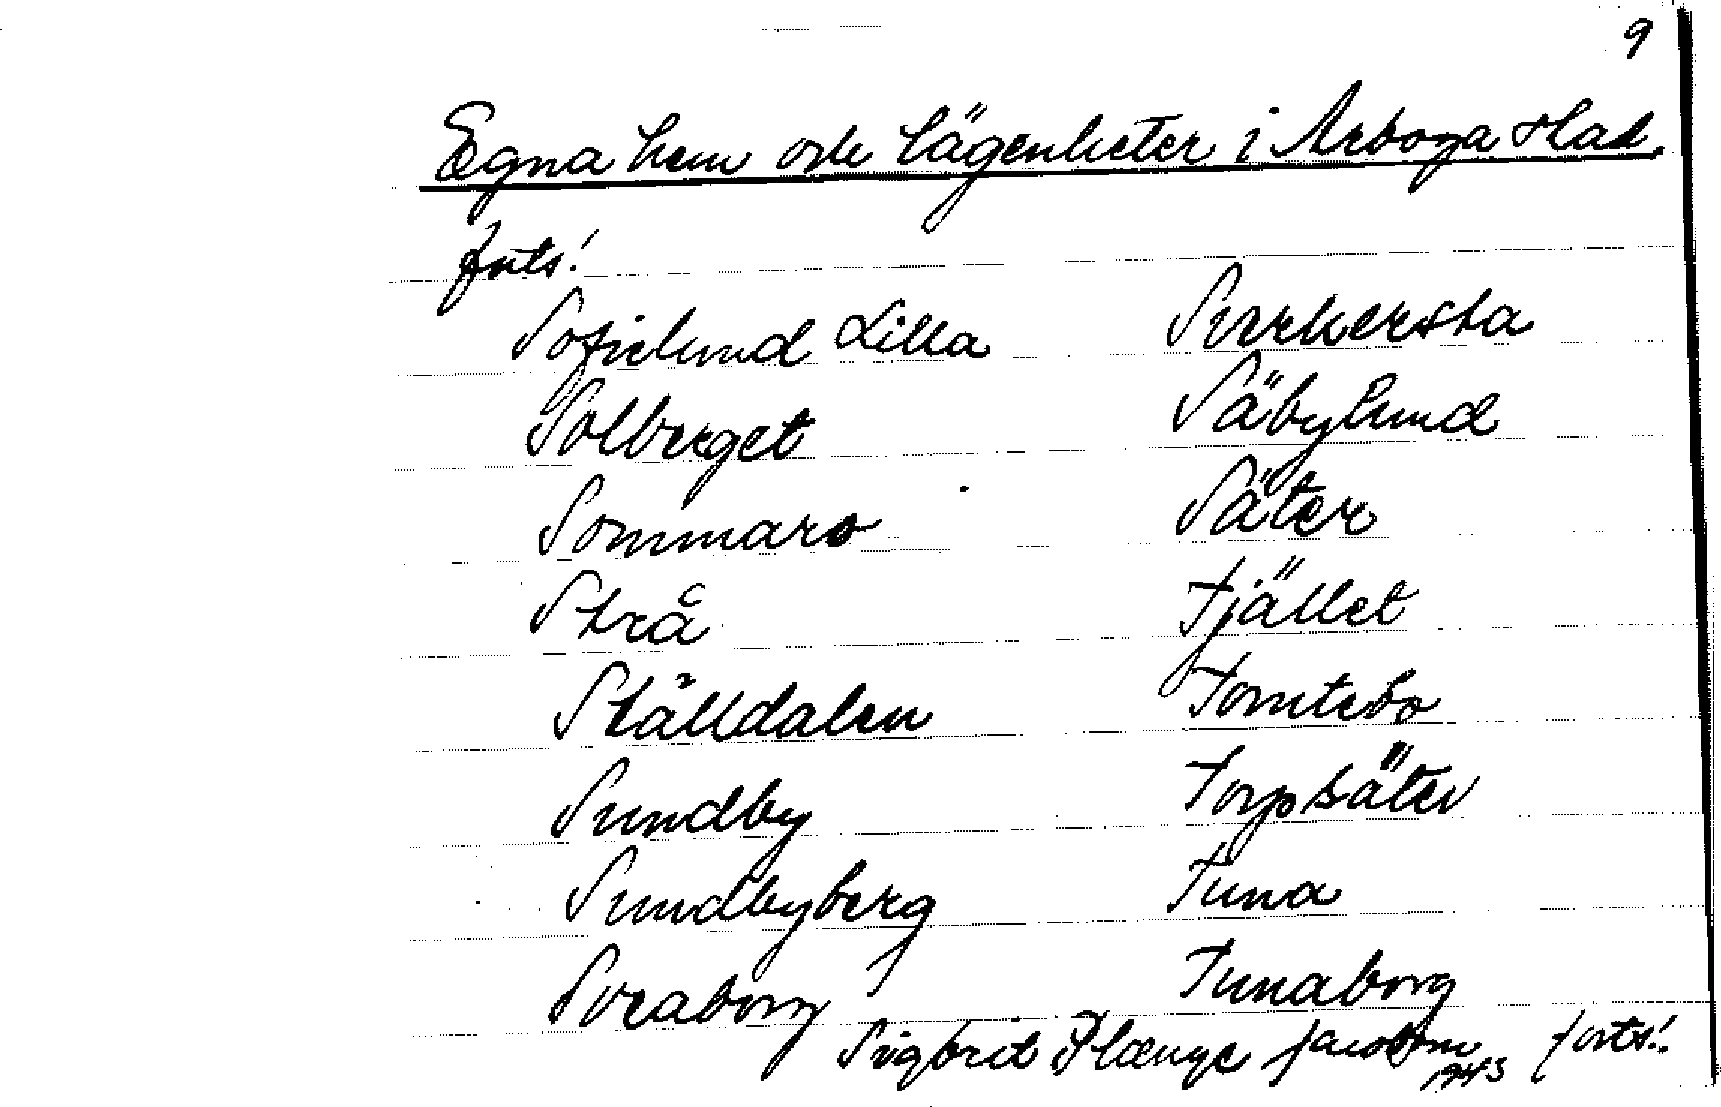 9
Egna hem och lägenheter i Arboga stad.
forts!
Sofielund Lilla
Solberget
Sommaro
Strå
Ställdalen
Sundby
Sundbyberg
Sveaborg
Surkersta
Säbylund
Säter
Tjället
Tomtebo
Torpsäter
Tuna
Tunaborg
Sigbrit Plænge Jacobson
1943
forts!